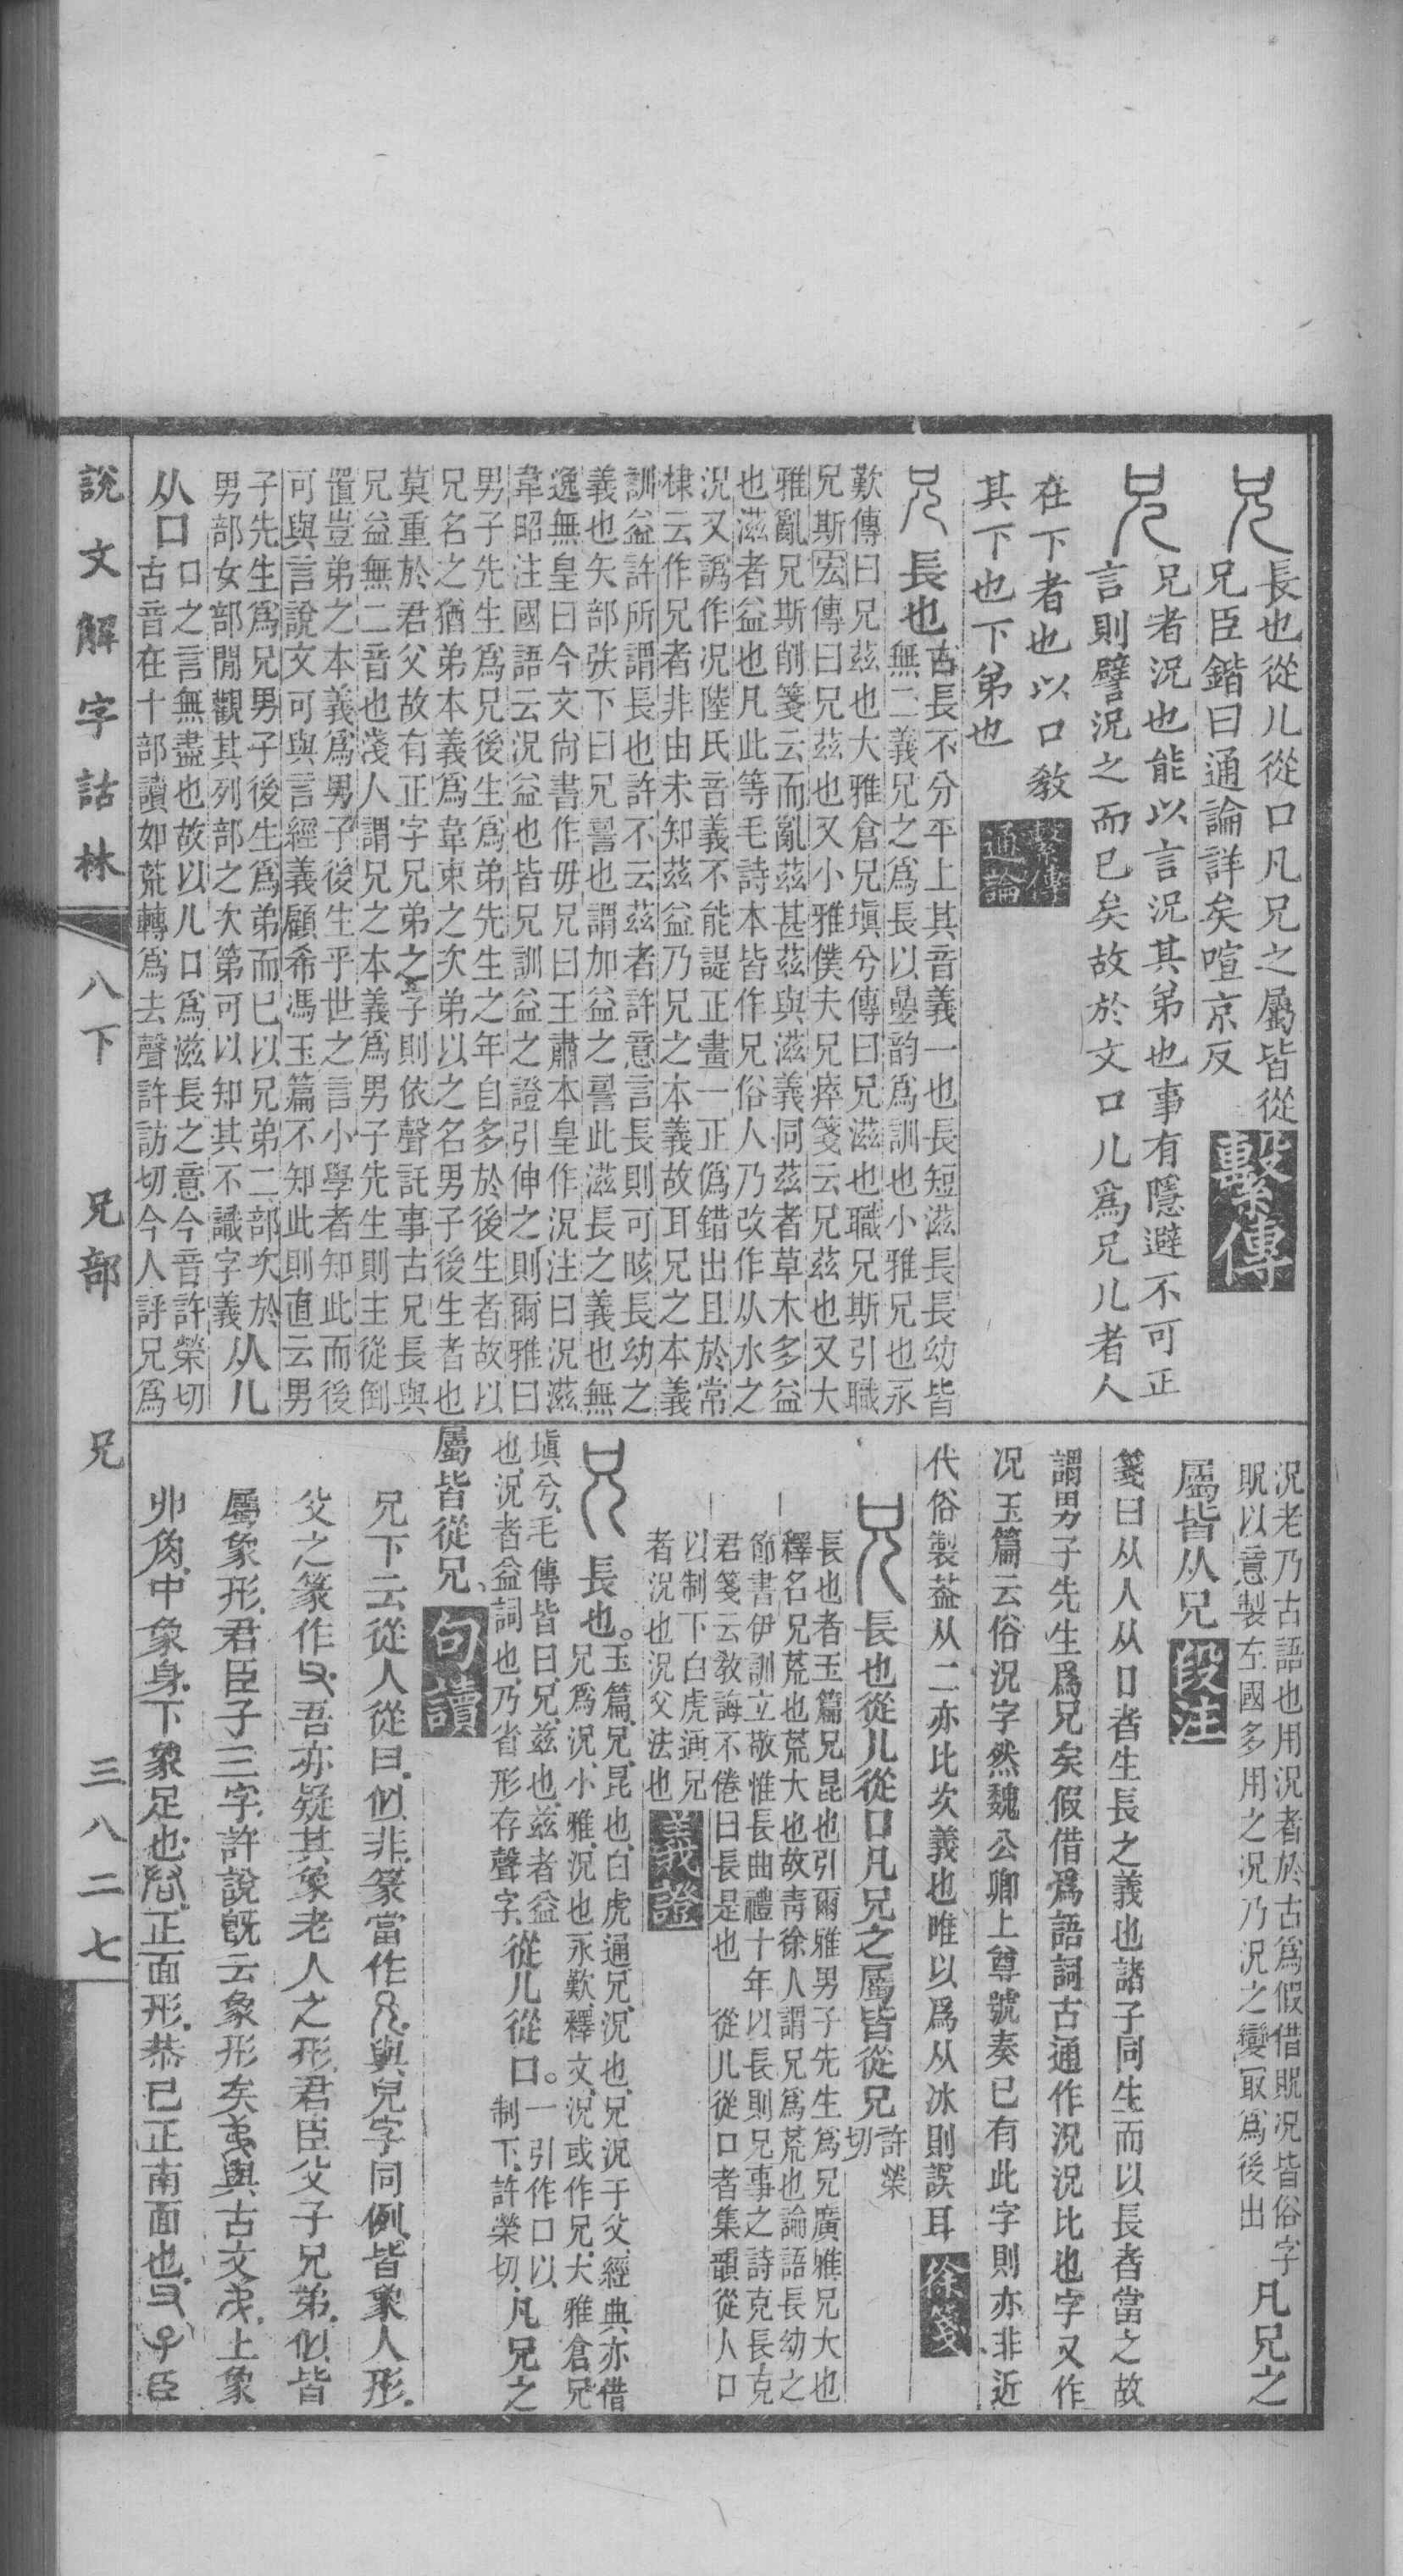 長也從儿從口凡兄之屬皆從
兄臣鍇曰通論詳矣喧京反
繫傳
兄者況也能以言況其弟也事有隱避不可正
言則譬況之而已矣故於文口儿爲兄儿者人
在下者也以口敎
其下也下弟也
繫傳
通論
長也
古長不分平上其音義一也長短滋長長幼皆
無二義兄之爲長以曡韵爲訓也小雅兄也永
歎傳曰兄茲也大雅倉兄塡兮傳曰兄滋也職兄斯引職
兄斯宏傳曰兄茲也又小雅僕夫兄瘁箋云兄茲也又大
雅亂兄斯削箋云而亂茲甚茲與滋義同茲者草木多益
也滋者益也凡此等毛詩本皆作兄俗人乃改作从水之
況又譌作况陸氏音義不能諟正畫一正僞錯出且於常
棣云作兄者非由未知茲益乃兄之本義故耳兄之本義
訓益許所謂長也許不云茲者許意言長則可晐長幼之
義也矢部矤下曰兄䛐也謂加益之䛐此滋長之義也無
逸無皇曰今文尙書作毋兄曰王肅本皇作況注曰況滋
韋昭注國語云況益也皆兄訓益之證引伸之則爾雅曰
男子先生爲兄後生爲弟先生之年自多於後生者故以
兄名之猶弟本義爲韋束之次弟以之名男子後生者也
莫重於君父故有正字兄弟之字則依聲託事古兄長與
兄益無二音也淺人謂兄之本義爲男子先生則主從倒
置豈弟之本義爲男子後生乎世之言小學者知此而後
可與言說文可與言經義顧希馮玉篇不知此則直云男
子先生爲兄男子後生爲弟而已以兄弟二部次於
男部女部閒觀其列部之次第可以知其不識字義
从儿
从口
口之言無盡也故以儿口爲滋長之意今音許榮切
古音在十部讀如荒轉爲去聲許訪切今人評兄爲
況老乃古語也用況者於古爲假借貺况皆俗字
貺以意製左國多用之况乃況之變取爲後出
凡兄之
屬皆从兄
段注
箋曰从人从口者生長之義也諸子同生而以長者當之故
謂男子先生爲兄矣假借爲語詞古通作況況比也字又作
况玉篇云俗況字然魏公卿上尊號奏已有此字則亦非近
代俗製葢从二亦比次義也唯以爲从冰則誤耳
徐箋
長也從儿從口凡兄之屬皆從兄
許榮
切
長也者玉篇兄昆也引爾雅男子先生爲兄廣雅兄大也
釋名兄荒也荒大也故靑徐人謂兄爲荒也論語長幼之
節書伊訓立敬惟長曲禮十年以長則兄事之詩克長克
君箋云敎誨不倦曰長是也
從儿從口者集韻從人口
以制下白虎通兄
者況也況父法也
義證
長也。
玉篇兄昆也白虎通兄況也兄況于父經典亦借
兄爲況小雅況也永歎釋文況或作兄大雅倉兄
塡兮毛傳皆曰兄茲也茲者益
也況者益詞也乃省形存聲字
從儿從口。
一引作口以
制下許榮切
凡兄之
屬皆從兄
句讀
兄下云從人從曰似非篆當作與兒字同例皆象人形
父之篆作吾亦疑其象老人之形君臣父子兄弟似皆
屬象形君臣子三字許說旣云象形矣與古文上象
丱角中象身下象足也正面形恭己正南面也臣
說文解字詁林
八下
兄部
兄
三八二七